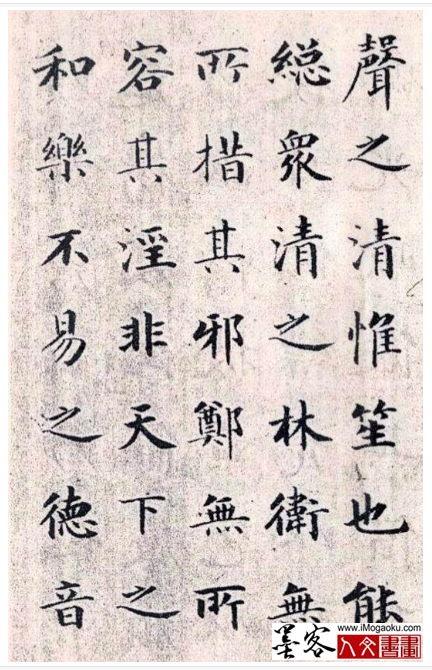 聲之清惟笙也能
緫衆清之林衛無
所措其邪鄭無所
容其淫非天下之
和樂不易之德音
墨客
www.iMogaoku.com
人文書畫